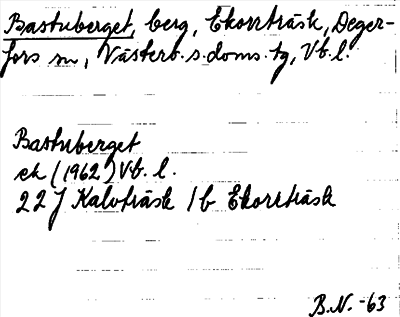 Bastuberget, berg, Ekorrträsk, Deger-
fors sn, Västerb. s. doms. tg, Vb. l.
Bastuberget
ek (1962) Vb. l.
22 J Kalvträsk 1 b Ekorrträsk
B.N. -63